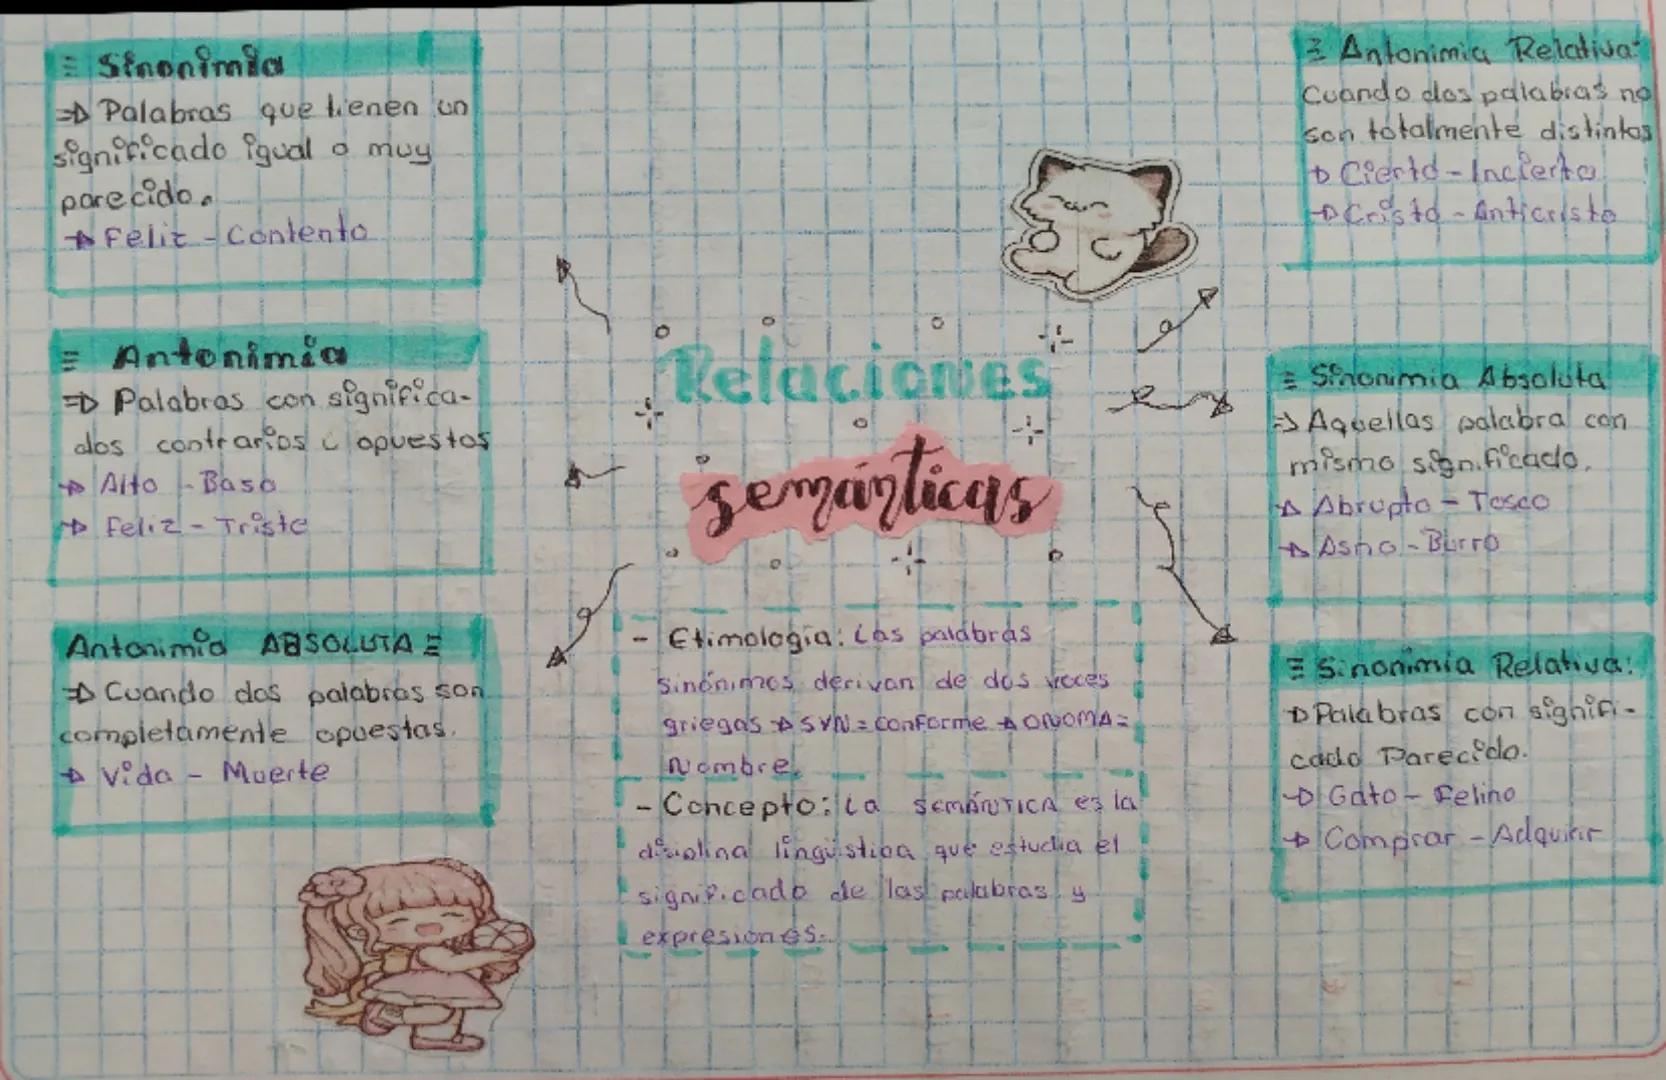 Sinonimia
Palabras que tienen un
significado igual o muy
parecido.
Feliz - Contento
Antonimia
Palabras con significa-
dos contrarios u opuestos
Alto - Baso
Feliz - Triste
Antonimia ABSOLUTA
Cuando dos palabras son
completamente opuestas.
Vida - Muerte
Relaciones
semánticas
- Etimología: Las palabras
sinónimos derivan de dos voces
griegas SYN = conforme ONOMA =
Nombre.
- Concepto: La SEMÁNTICA es la
disiplina lingüistica que estudia el
significado de las palabras y
expresiones.
Antonimia Relativa:
Cuando dos palabras no
son totalmente distintas
Cierto - Incierto
Cristo - Anticristo
Sinonimia Absoluta
Aquellas palabra con
mismo significado.
Abrupto - Tosco
Asno - Burro
Sinonimia Relativa:
Palabras con signifi-
cado Parecido.
Gato - Felino
Comprar - Adquirir